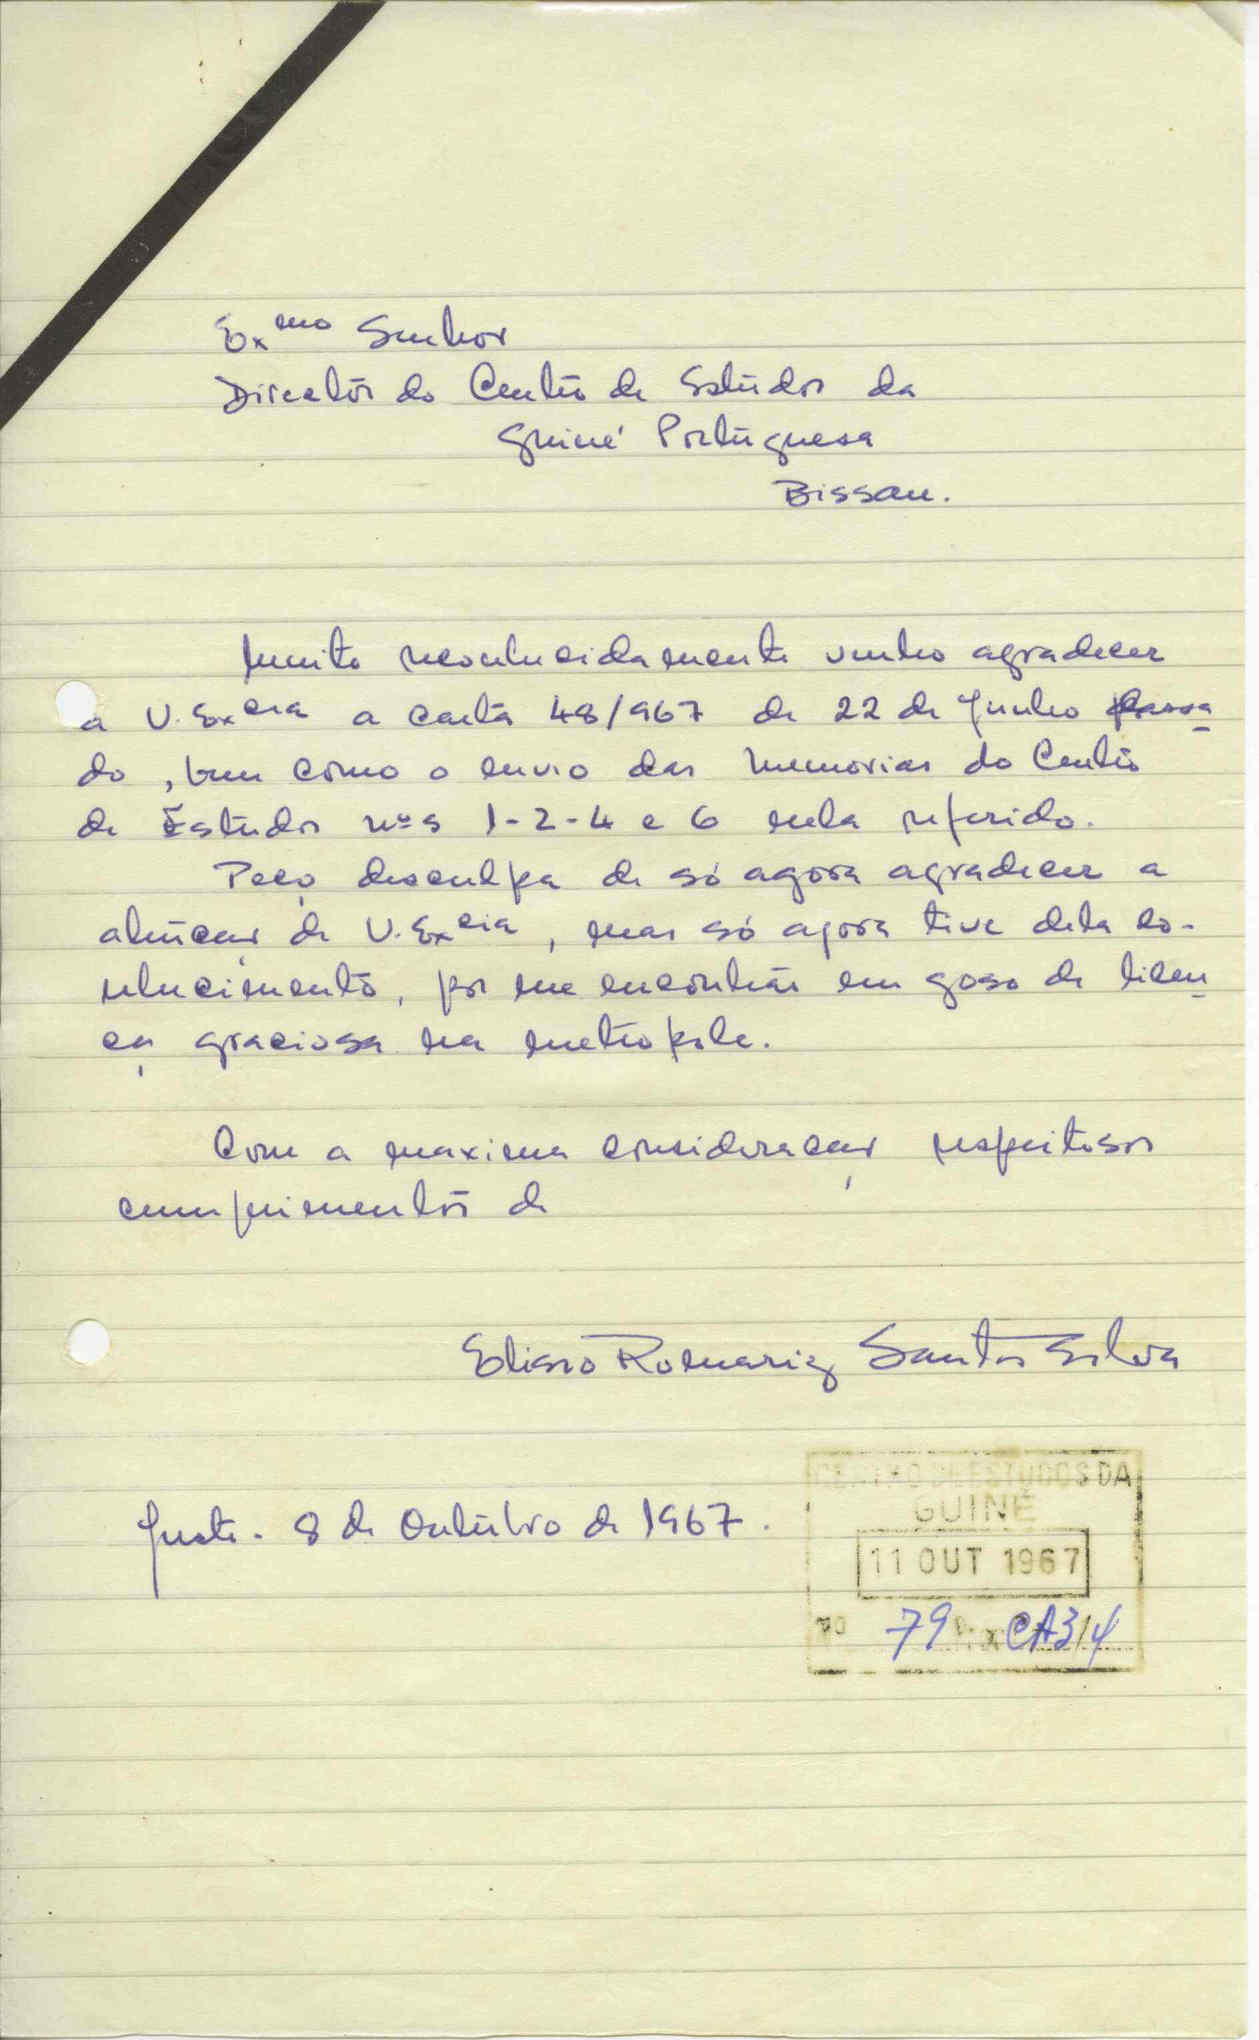 Exmo Senhor
Director do Centro de Estudos da
Guiné Portuguesa
Bissau.
Muito reconhecidamente venho agradecer
a V. Excia a carta 48/967 de 22 de Junho passa
do, bem como o envio das memorias do Centro
de Estudos nºs 1-2-4 e 6 nela referido.
Peço desculpa de só agora agradecer a
atençaõ de V. Excia, mas só agora tive dela co-
nhecimento, por me encontrar em goso de licen
ça graciosa na metropole.
Com a maxima consideraçaõ respeitosos
cumprimentos de
Eliseo Romariz Santos Silva
8 de Outubro de 1967.
CENTRO DE ESTUDOS DA
GUINÉ
11 OUT 1967
79 CA3/4